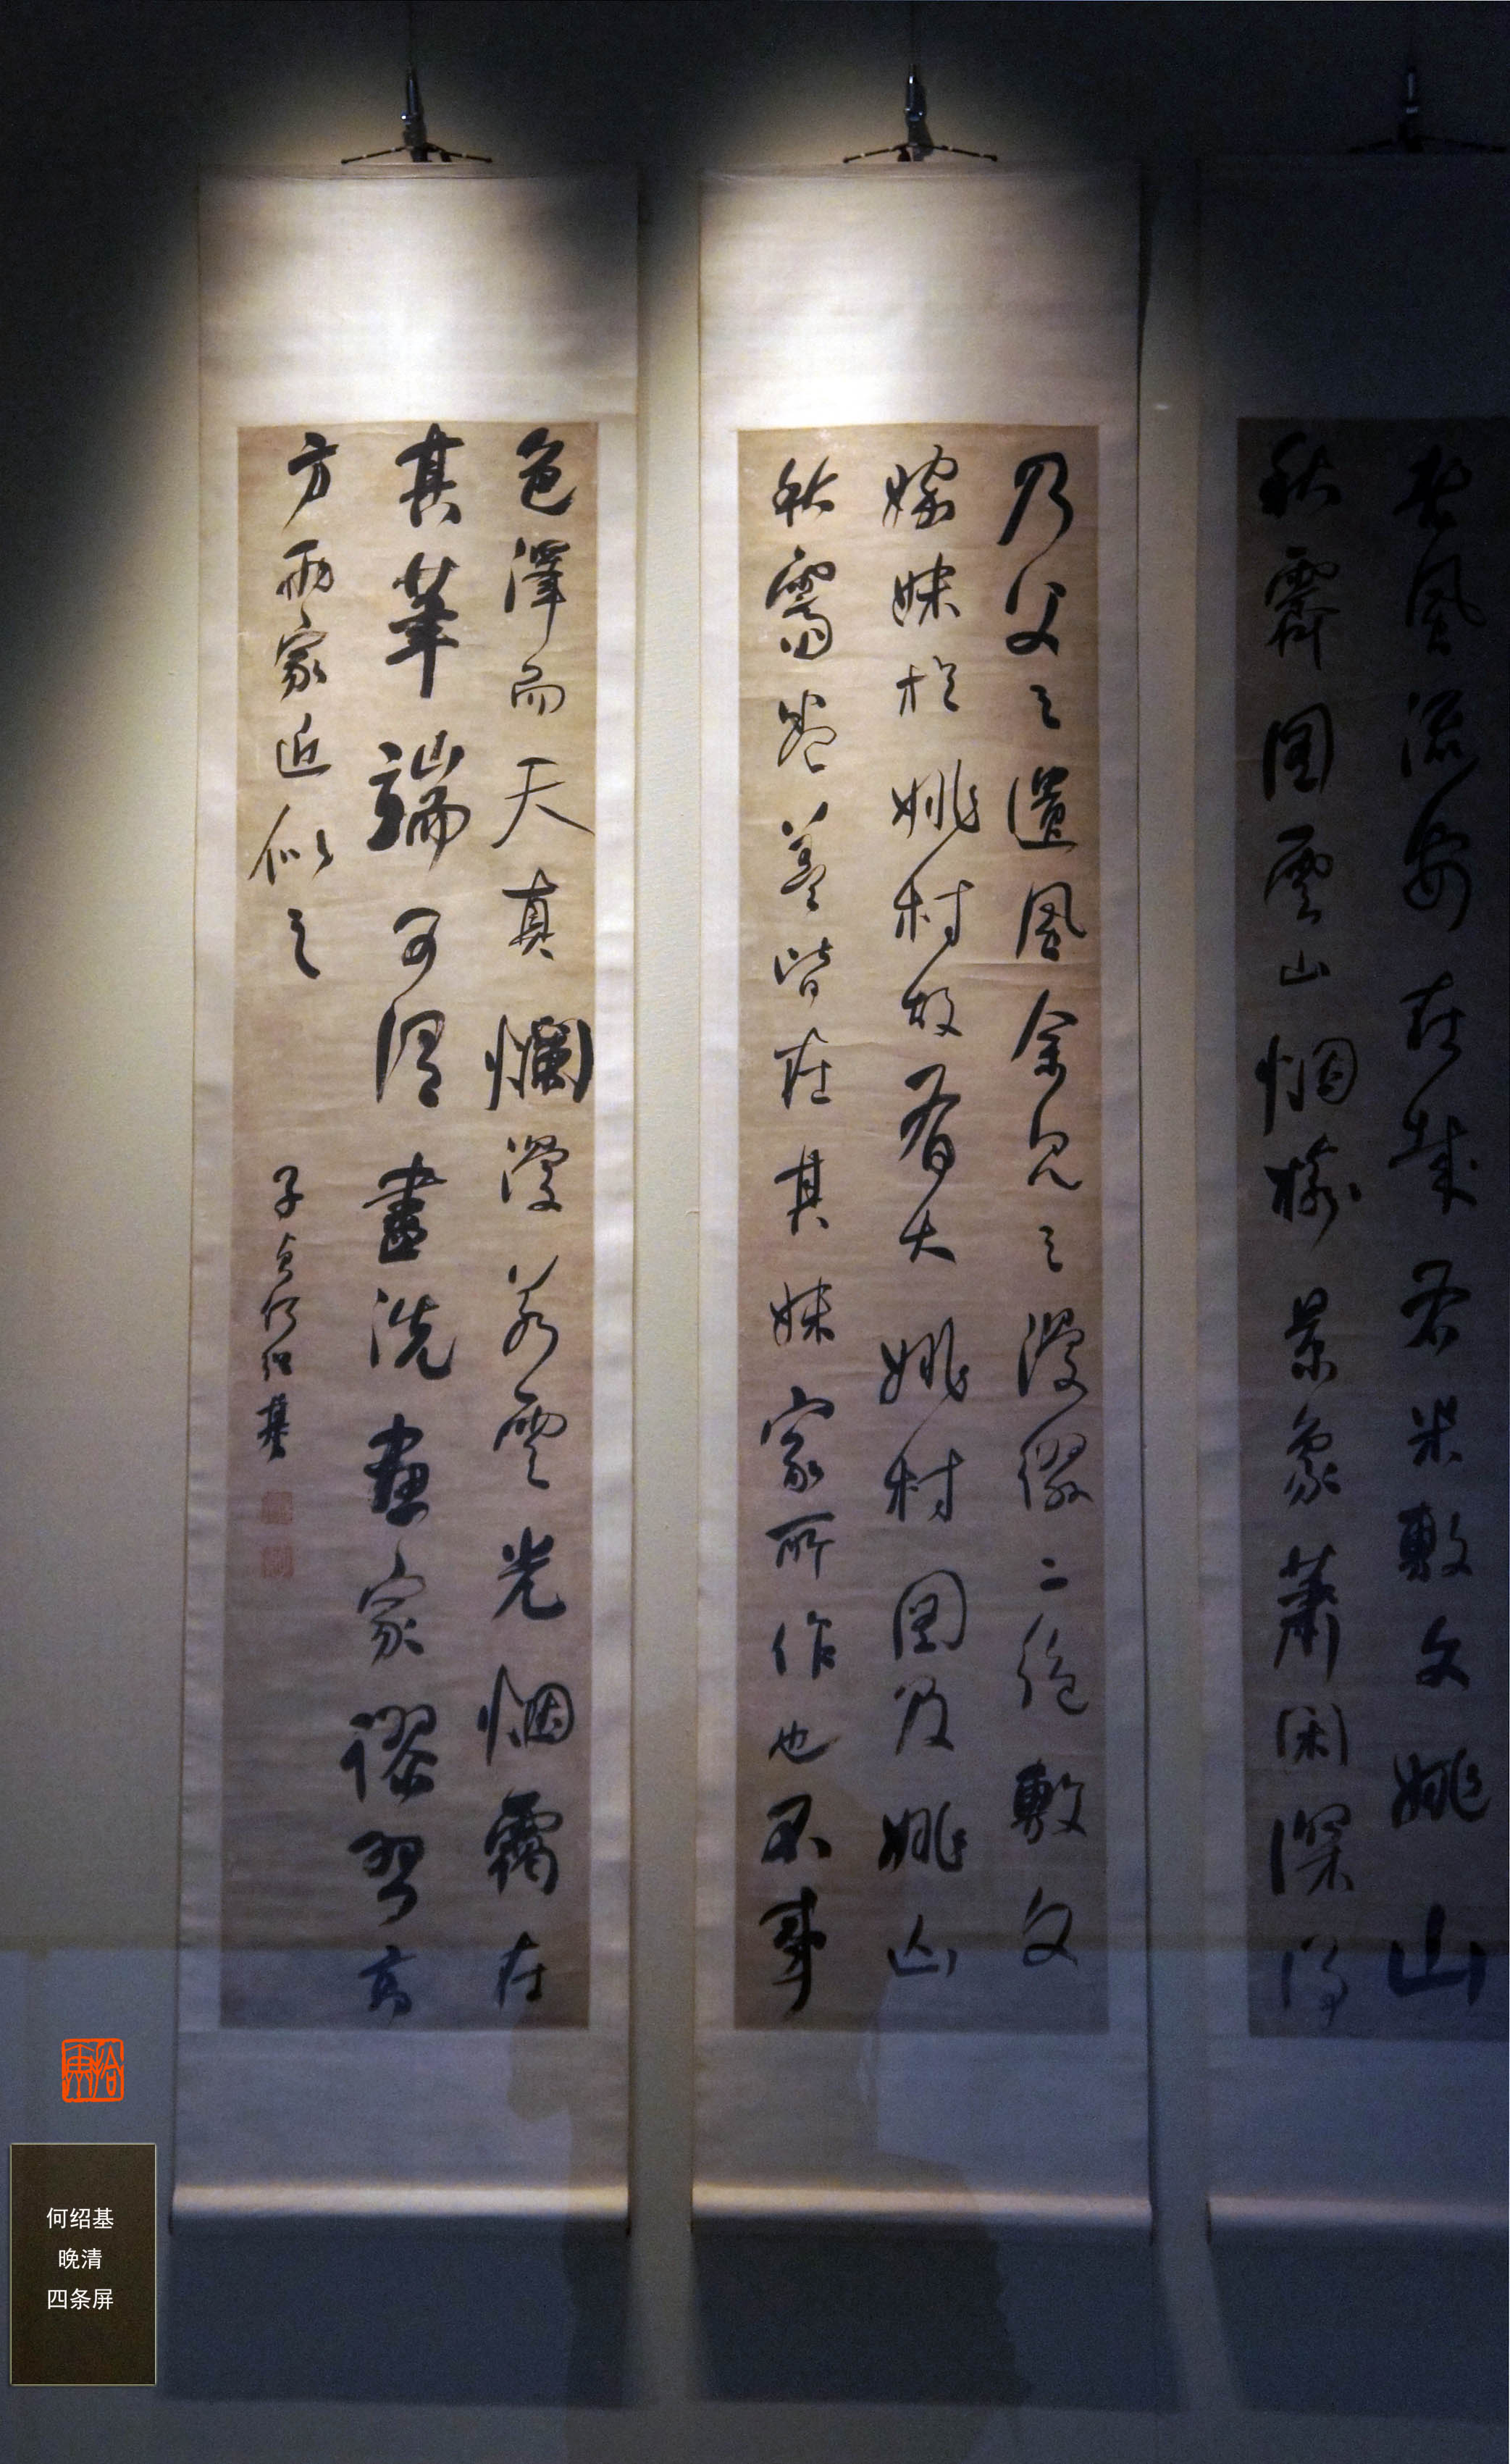 楚風流安在哉君米敷文姚山
秋霽圖雲山烟樹景象蕭閑深得
乃父之遺風余見之漫綴二絕敷文
嫁妹於姚村故有大姚村圖及姚山
秋霽卷蓋皆在其妹家所作也不事
色澤而天真爛漫若雲光烟靄在
其筆端可謂畫洗畫家謬習高
方兩家近似之
子貞何紹基
何绍基
晚清
四条屏